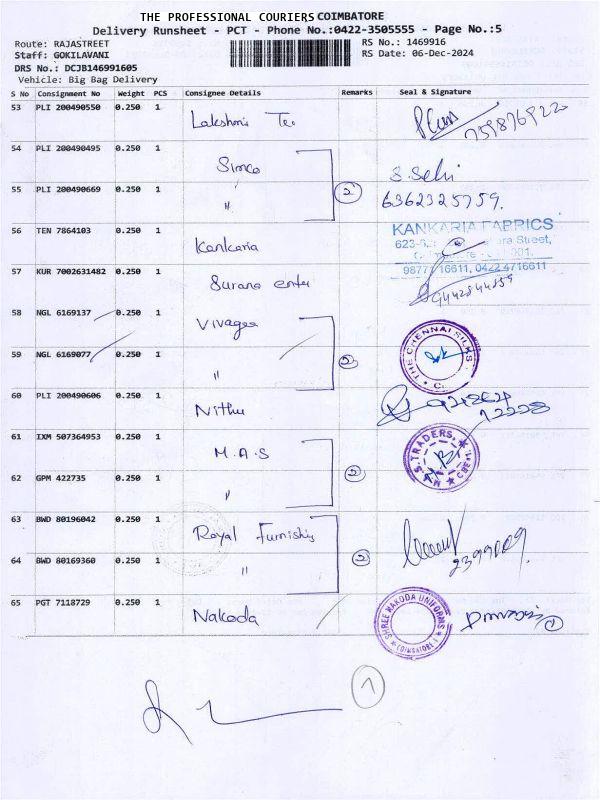 THE PROFESSIONAL COURIERS COIMBATORE
Delivery Runsheet - PCT - Phone No.:0422-3505555 - Page No.:5
Route: RAJASTREET
Staff: GOKILAVANI
DRS No.: DCJB146991605
Vehicle: Big Bag Delivery
RS No.: 1469916
RS Date: 06-Dec-2024
S No Consignment No Weight PCS Consignee Details Remarks Seal & Signature
53 PLI 200490550 0.250 1 Lakshmi
54 PLI 200490495 0.250 1 Simco
55 PLI 200490669 0.250 1 " 2
S. Selvi
6362325759.
56 TEN 7864103 0.250 1 Kankaria
KANKARIA FABRICS
Street,
9877 16611, 0422 4716611
57 KUR 7002631482 0.250 1 Surana enter
9442844559
58 NGL 6169137 0.250 1
59 NGL 6169077 0.250 1 " 2
THE CHENNAI SILKS
60 PLI 200490606 0.250 1 Nithu
61 IXM 507364953 0.250 1 M.A.S
62 GPM 422735 0.250 1 " 2
TRADERS,
63 BWD 80196042 0.250 1 Royal Furnishing
64 BWD 80169360 0.250 1 " 2
2399009.
65 PGT 7118729 0.250 1 Nakoda
SHREE NAKODA UNIFORMS
COIMBATORE-1
1
1